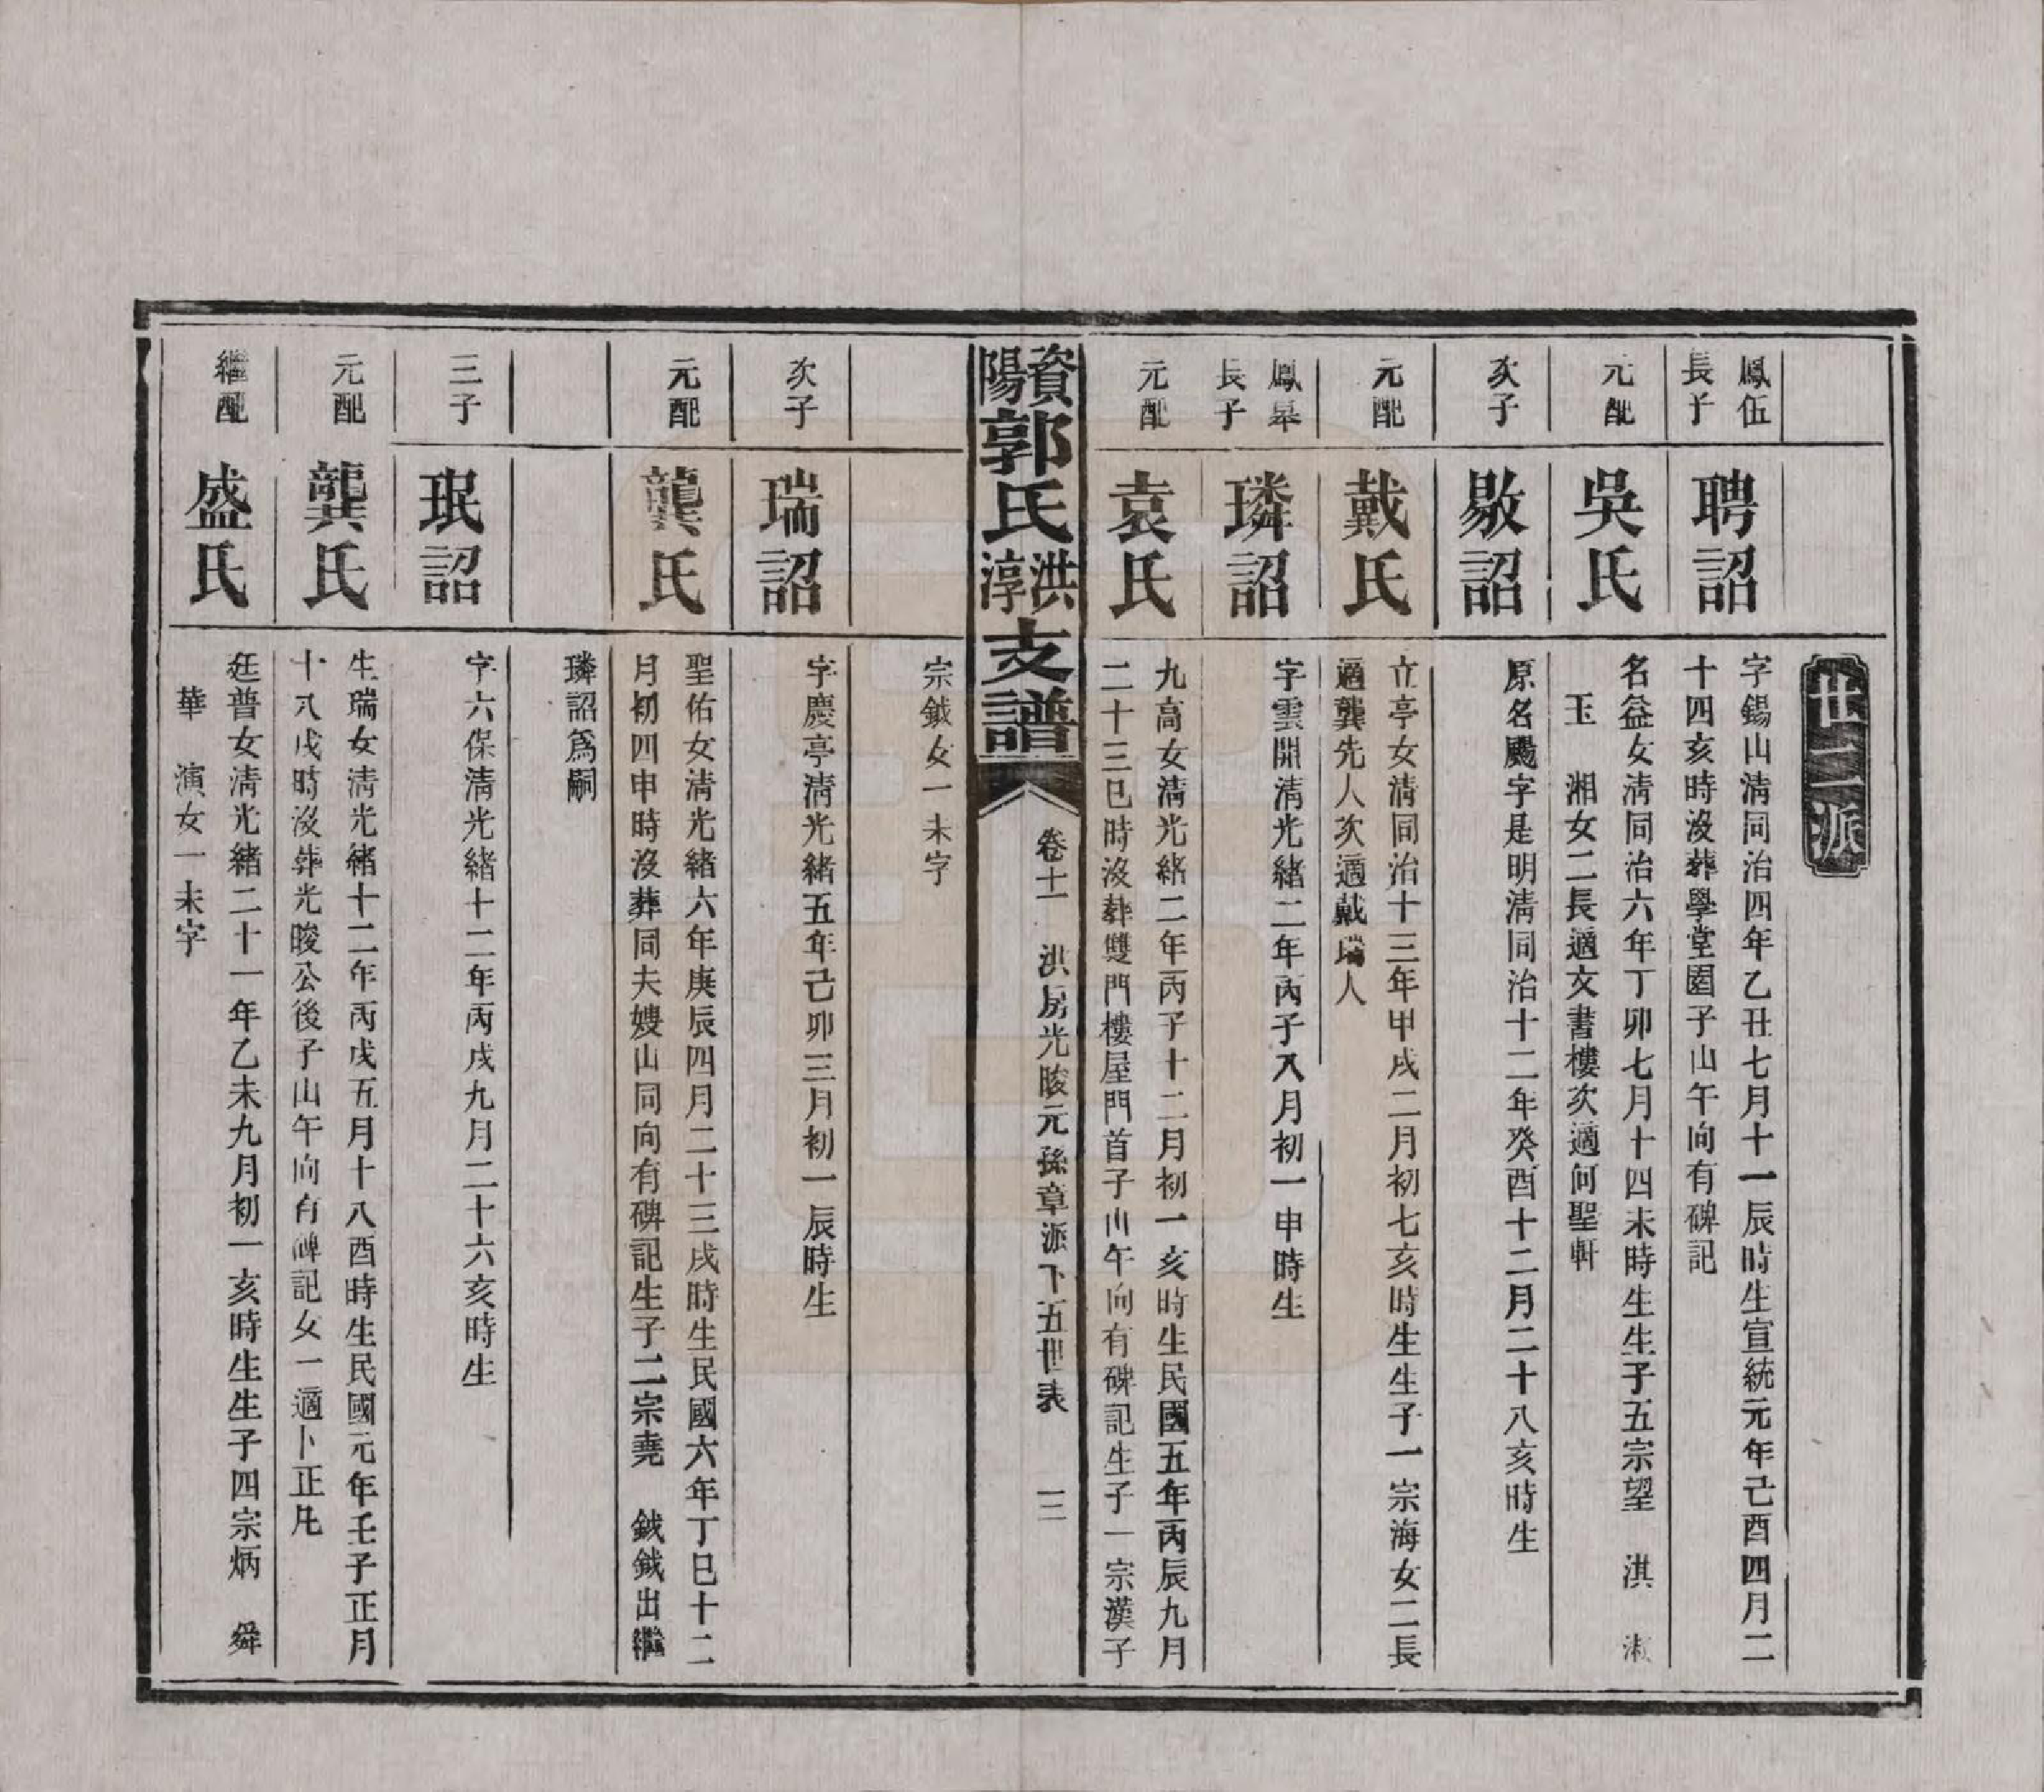 廿二派
鳳伍
長子
聘詔
字錫山清同治四年乙丑七月十一辰時生宣統元年己酉四月二
十四亥時沒葬學堂園子山午向有碑記
元配
吳氏
名益女清同治六年丁卯七月十四未時生生子五宗望 淇 淑
玉 湘女二長適文書樓次適何聖軒
次子
敭詔
原名颺字是明清同治十二年癸酉十二月二十八亥時生
元配
戴氏
立亭女清同治十三年甲戌二月初七亥時生生子一宗海女二長
適龔先人次適戴瑞人
鳳皋
長子
璘詔
字雲開清光緒二年丙子八月初一申時生
元配
袁氏
九高女清光緒二年丙子十二月初一亥時生民國五年丙辰九月
二十三巳時沒葬雙門樓屋門首子山午向有碑記生子一宗漢子
資陽郭氏洪淳支譜
卷十一 洪房光晙元孫章派下五世表 二
宗鉞女一未字
次子
瑞詔
字慶亭清光緒五年己卯三月初一辰時生
元配
龔氏
聖佑女清光緒六年庚辰四月二十三戌時生民國六年丁巳十二
月初四申時沒葬同夫嫂山同向有碑記生子二宗堯 鉞鉞出繼
璘詔爲嗣
三子
珉詔
字六保清光緒十二年丙戌九月二十六亥時生
元配
龔氏
生瑞女清光緒十二年丙戌五月十八酉時生民國元年壬子正月
十八戌時沒葬光晙公後子山午向有碑記女一適卜正凡
繼配
盛氏
廷普女清光緒二十一年乙未九月初一亥時生生子四宗炳 舜
華 演女一未字